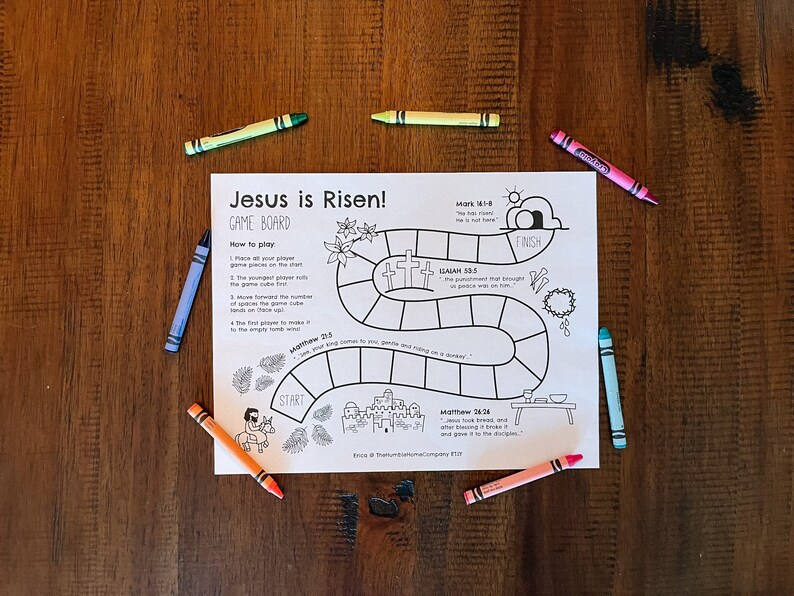 Crayola
Jesus is Risen!
GAME BOARD
How to play:
1. Place all your player
game pieces on the start.
2. The youngest player rolls
the game cube first.
3. Move forward the number
of spaces the game cube
lands on (face up).
4 The first player to make it
to the empty tomb wins!
Mark 16:1-8
"He has risen!
He is not here."
FINISH
ISAIAH 53:5
"...the punishment that brought
us peace was on him..."
Matthew 21:5
"...See, your king comes to you, gentle and riding on a donkey"..."
START
Matthew 26:26
"...Jesus took bread, and
after blessing it broke it
and gave it to the disciples..."
Erica @ TheHumbleHomeCompany ETSY